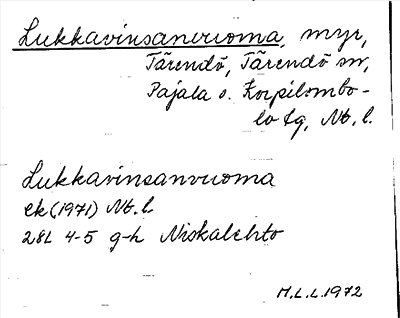 Lukkavinsanvuoma, myr,
Tärendö, Tärendö sn,
Pajala o. Korpilombo-
lo tg, Nb. l.
Lukkavinsanvuoma
ek (1971) Nb. l.
28L 4-5 g-h Niskalehto
M.L.L. 1972